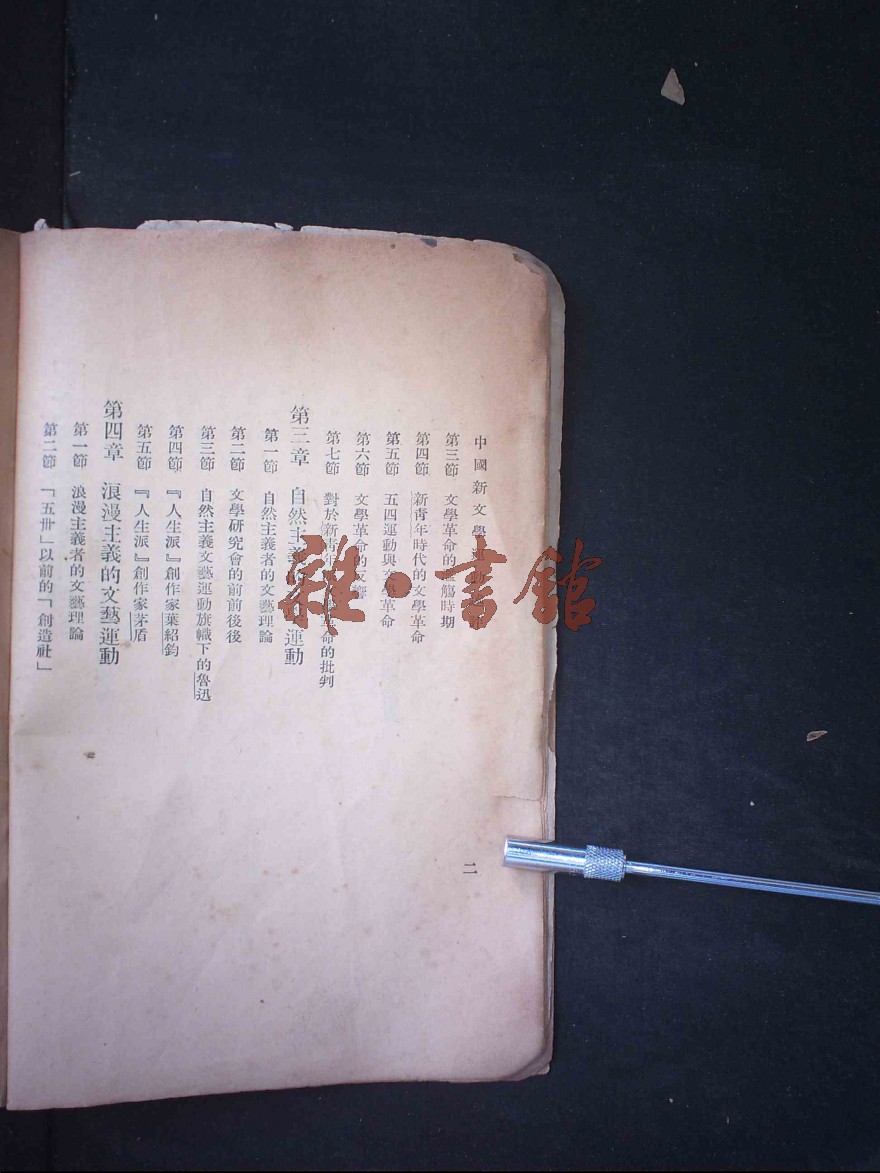 中國新文學運動
第三節 文學革命的 觴時期
第四節 新靑年時代的文學革命
第五節 五四運動與文學革命
第六節 文學革命的
第七節 對於新靑年 命的批判
第三章 自然主義 運動
第一節 自然主義者的文藝理論
第二節 文學研究會的前前後後
第三節 自然主義文藝運動旗幟下的魯迅
第四節 『人生派』創作家葉紹鈞
第五節 『人生派』創作家茅盾
第四章 浪漫主義的文藝運動
第一節 浪漫主義者的文藝理論
第二節 「五卅」以前的「創造社」
二
雜·書館